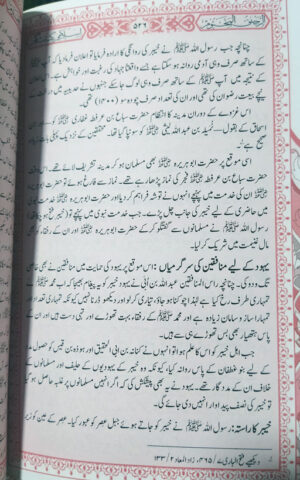 الرحیق المختوم
۵۲۶
چنانچہ جب رسول اللہ ﷺ نے خیبر کی روانگی کا ارادہ فرمایا تو اعلان فرما دیا کہ آپ
کے ساتھ صرف وہی آدمی روانہ ہو سکتا ہے جسے واقعتاً جہاد کی رغبت اور خواہش ہے۔ اس اعلان
کے نتیجہ میں آپ ﷺ کے ساتھ صرف وہی لوگ جا سکے جنہوں نے حدیبیہ میں درخت کے
نیچے بیعت رضوان کی تھی اور ان کی تعداد صرف چودہ سو (۱۴۰۰) تھی۔
اس غزوے کے دوران مدینہ کا انتظام حضرت سباع بن عرفطہ غفاری کو سونپا گیا تھا۔ ابن
اسحاق کے بقول نمیلہ بن عبد اللہ لیثی کو سونپا گیا تھا۔ محققین کے نزدیک پہلی بات زیادہ
صحیح ہے
اسی موقع پر حضرت ابو ہریرہ بھی مسلمان ہو کر مدینہ تشریف لائے تھے۔ اس وقت
حضرت سباع بن عرفطہ فجر کی نماز پڑھا رہے تھے۔ نماز سے فارغ ہوئے تو حضرت ابو ہریرہ
ان کی خدمت میں پہنچے انہوں نے توشہ فراہم کر دیا اور حضرت ابو ہریرہ خدمت نبوی
میں حاضری کے لیے خیبر کی جانب چل پڑے۔ جب خدمت نبوی میں پہنچے تو (خیبر فتح ہو چکا تھا)
رسول اللہ ﷺ نے مسلمانوں سے گفتگو کر کے حضرت ابو ہریرہ اور ان کے رفقاء کو بھی
مال غنیمت میں شریک کر لیا۔
یہود کے لیے منافقین کی سرگرمیاں: اس موقع پر یہود کی حمایت میں منافقین نے بھی خاصی
تگ و دو کی۔ چنانچہ راس المنافقین عبد اللہ بن ابی نے یہود خیبر کو یہ پیغام بھیجا کہ اب محمد ﷺ نے
تمہاری طرف رخ کیا ہے لہٰذا چوکنا ہو جاؤ، تیاری کر لو اور دیکھو ڈرنا نہیں کیونکہ تمہاری تعداد اور
تمہارا ساز و سامان زیادہ ہے اور محمد ﷺ کے رفقاء بہت تھوڑے اور تہی دست ہیں اور ان کے
پاس ہتھیار بھی بس تھوڑے ہی سے ہیں۔
جب اہل خیبر کو اس کا علم ہوا تو انہوں نے کنانہ بن ابی الحقیق اور ہوذہ بن قیس کو حصول مدد
کے لیے بنو غطفان کے پاس روانہ کیا، کیونکہ وہ خیبر کے یہودیوں کے حلیف اور مسلمانوں کے
خلاف ان کے مددگار تھے۔ یہود نے یہ بھی پیشکش کی کہ اگر انہیں مسلمانوں پر غلبہ حاصل ہو گیا
تو خیبر کی نصف پیداوار انہیں دی جائے گی۔
خیبر کا راستہ: رسول اللہ ﷺ نے خیبر کو جاتے ہوئے جبل عصر کو عبور کیا۔ عصر کے عین کو زیر
دیکھیے فتح الباری ۷/ ۳۶۵، زاد المعاد ۲/ ۱۳۳